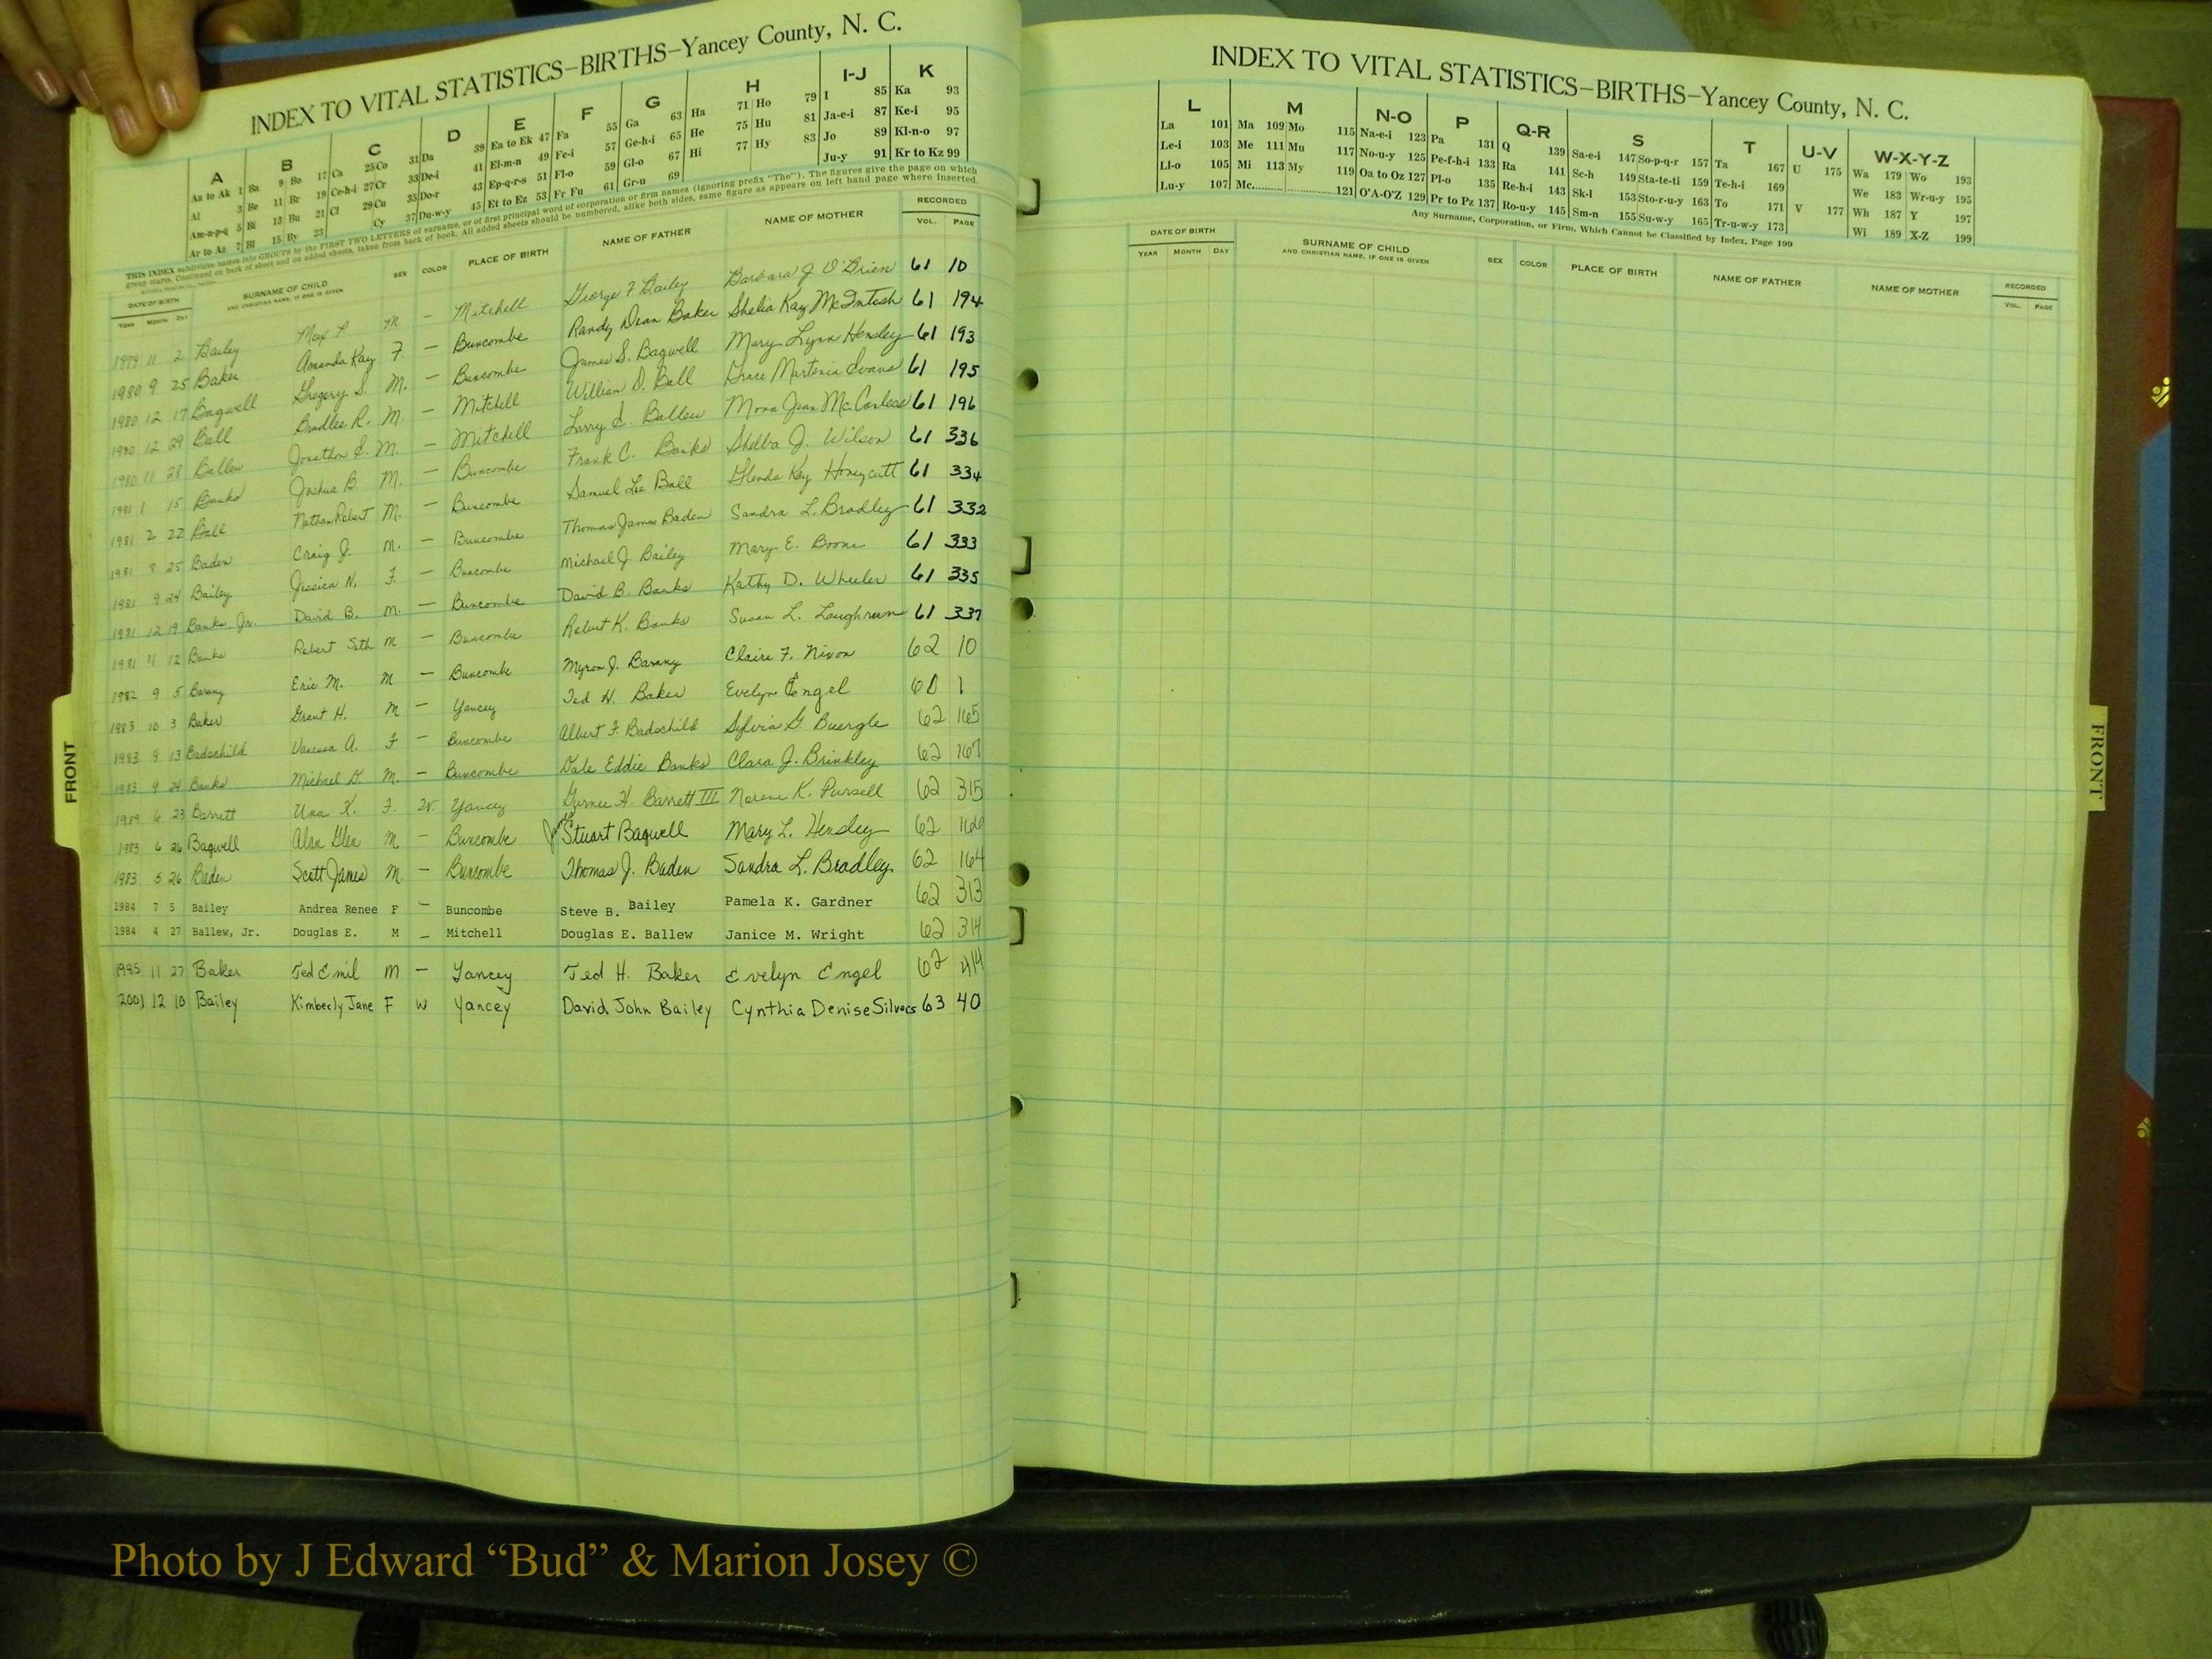 INDEX TO VITAL STATISTICS–BIRTHS–Yancey County, N. C.
A B C D E F G H I-J K
Aa to Ak 1 Ba 9 Bo 17 Ca 25 Co 31 Da 39 Ea to Ek 47 Fa 55 Ga 63 Ha 71 Ho 79 I 85 Ka 93
Al 3 Be 11 Br 19 Ce-h-i 27 Cr 33 De-i 41 El-m-n 49 Fe-i 57 Ge-h-i 65 He 75 Hu 81 Ja-e-i 87 Ke-i 95
Am-n-p-q 5 Bi 13 Bu 21 Cl 29 Cu 35 Do-r 43 Ep-q-r-s 51 Fl-o 59 Gl-o 67 Hi 77 Hy 83 Jo 89 Kl-n-o 97
Ar to Az 7 Bl 15 By 23 Cy 37 Du-w-y 45 Et to Ez 53 Fr Fu 61 Gr-u 69 Ju-y 91 Kr to Kz 99
THIS INDEX subdivides names into GROUPS by the FIRST TWO LETTERS of surname, or of first principal word of corporation or firm names (ignoring prefix "The"). The figures give the page on which
group starts. Continued on back of sheet and on added sheets, taken from back of book. All added sheets should be numbered, alike both sides, same figure as appears on left hand page where inserted.
DATE OF BIRTH SURNAME OF CHILD SEX COLOR PLACE OF BIRTH NAME OF FATHER NAME OF MOTHER RECORDED
YEAR MONTH DAY AND CHRISTIAN NAME, IF ONE IS GIVEN VOL. PAGE
1979 11 2 Bailey Max F. M – Mitchell George F Bailey Barbara J. O'Brien 61 10
1980 9 25 Baker Amanda Kay F. – Buncombe Randy Dean Baker Shelia Kay McIntosh 61 194
1980 12 17 Bagwell Gregory S. M. – Buncombe James S. Bagwell Mary Lynn Hensley 61 193
1980 12 29 Ball Bradlee R. M. – Mitchell William D. Ball Grace Martenia Evans 61 195
1980 11 28 Ballew Jonathon E. M. – Mitchell Larry E. Ballew Mona Jean McCanless 61 196
1981 1 15 Banks Joshua B M. – Buncombe Frank C. Banks Shelba J. Wilson 61 336
1981 2 22 Ball Nathan Robert M. – Buncombe Samuel Lee Ball Glenda Kay Honeycutt 61 334
1981 8 25 Baden Craig J. M. – Buncombe Thomas James Baden Sandra L. Bradley 61 332
1981 9 24 Bailey Jessica N. F. – Buncombe Michael J. Bailey Mary E. Boone 61 333
1981 12 19 Banks, Jr. David B. M. – Buncombe David B. Banks Kathy D. Wheeler 61 335
1981 11 12 Banks Robert Seth M – Buncombe Robert K. Banks Susan L. Loughrun 61 337
1982 9 5 Barany Eric M. M – Buncombe Myron J. Barany Claire F. Nixon 62 10
1983 10 3 Baker Grant H. M – Yancey Ted H. Baker Evelyn Engel 60 1
1983 9 13 Badschild Vanessa A. F – Buncombe Albert F. Badschild Sylvia G. Buergle 62 165
1983 9 24 Banks Michael D. M. – Buncombe Dale Eddie Banks Clara J. Brinkley 62 167
1984 6 23 Barrett Una K. F. W. Yancey Gurnee H. Barrett III Norene K. Pursell 62 315
1983 6 26 Bagwell Alan Glen M – Buncombe James Stuart Bagwell Mary L. Hensley 62 166
1983 5 26 Baden Scott James M – Buncombe Thomas J. Baden Sandra L. Bradley 62 164
1984 7 5 Bailey Andrea Renee F – Buncombe Steve B. Bailey Pamela K. Gardner 62 313
1984 4 27 Ballew, Jr. Douglas E. M – Mitchell Douglas E. Ballew Janice M. Wright 62 314
1985 11 27 Baker Ted Emil M – Yancey Ted H. Baker Evelyn Engel 62 414
2001 12 10 Bailey Kimberly Jane F W Yancey David John Bailey Cynthia Denise Silvers 63 40
FRONT
INDEX TO VITAL STATISTICS–BIRTHS–Yancey County, N. C.
L M N-O P Q-R S T U-V W-X-Y-Z
La 101 Ma 109 Mo 115 Na-e-i 123 Pa 131 Q 139 Sa-e-i 147 So-p-q-r 157 Ta 167 U 175 Wa 179 Wo 193
Le-i 103 Me 111 Mu 117 No-u-y 125 Pe-f-h-i 133 Ra 141 Sc-h 149 Sta-te-ti 159 Te-h-i 169 We 183 Wr-u-y 195
Ll-o 105 Mi 113 My 119 Oa to Oz 127 Pl-o 135 Re-h-i 143 Sk-l 153 Sto-r-u-y 163 To 171 V 177 Wh 187 Y 197
Lu-y 107 Mc 121 O'A-O'Z 129 Pr to Pz 137 Ro-u-y 145 Sm-n 155 Su-w-y 165 Tr-u-w-y 173 Wi 189 X-Z 199
Any Surname, Corporation, or Firm, Which Cannot be Classified by Index, Page 199
DATE OF BIRTH SURNAME OF CHILD SEX COLOR PLACE OF BIRTH NAME OF FATHER NAME OF MOTHER RECORDED
YEAR MONTH DAY AND CHRISTIAN NAME, IF ONE IS GIVEN VOL. PAGE
FRONT
Photo by J Edward “Bud” & Marion Josey ©